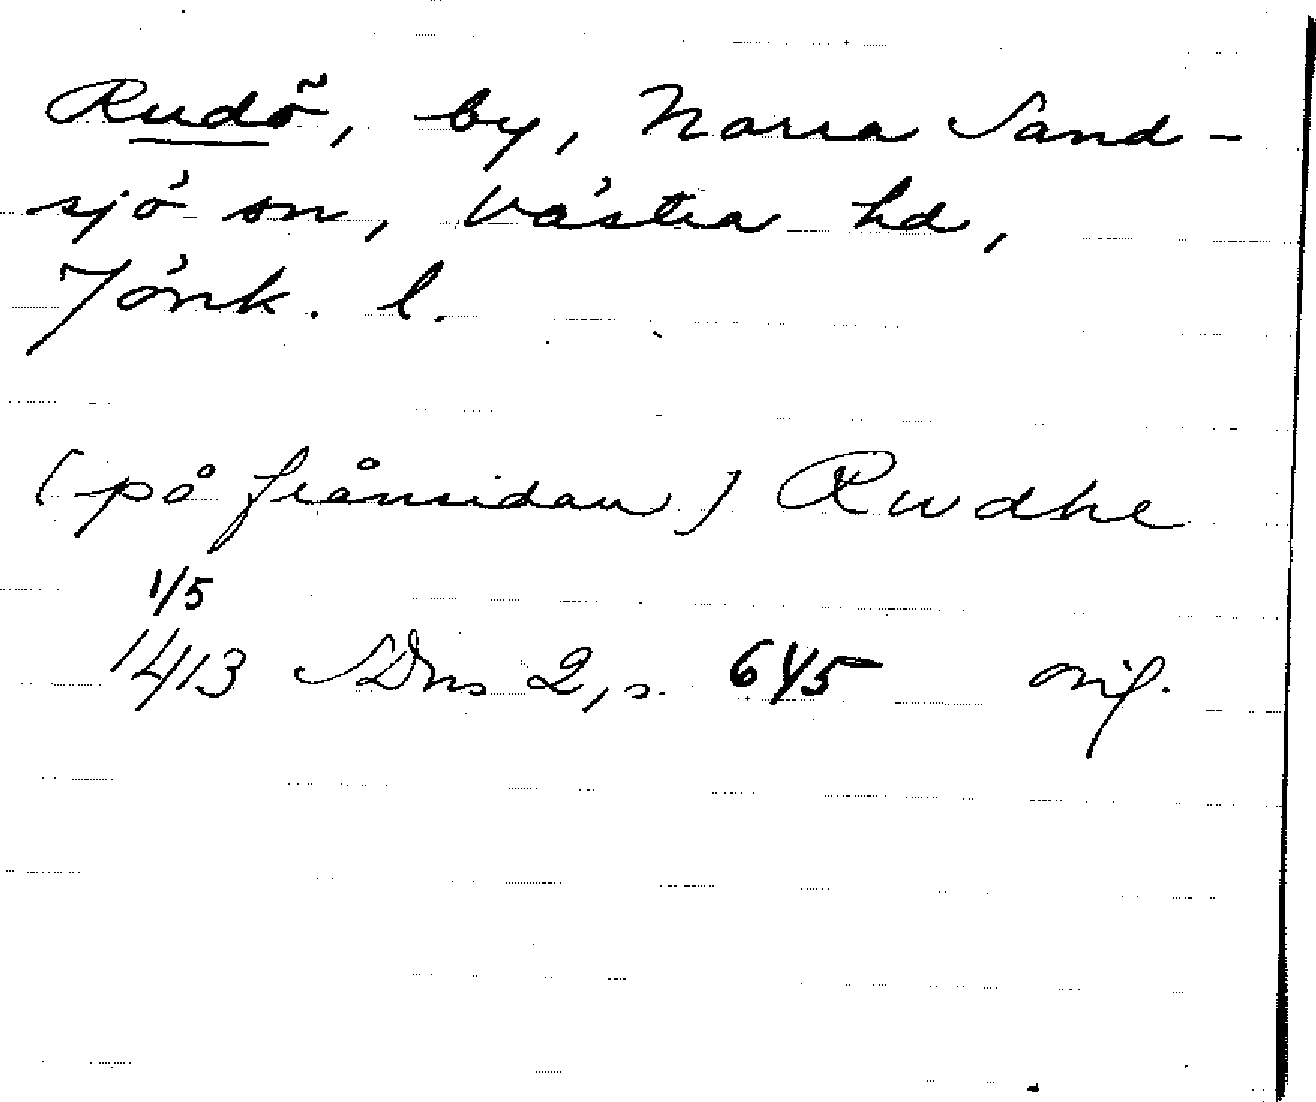 Rudö, by, Norra Sand-
sjö sn, Västra hd,
Jönk. l.
(på frånsidan) Rwdhe
1/5
1413 SDns 2, s. 645 orig.